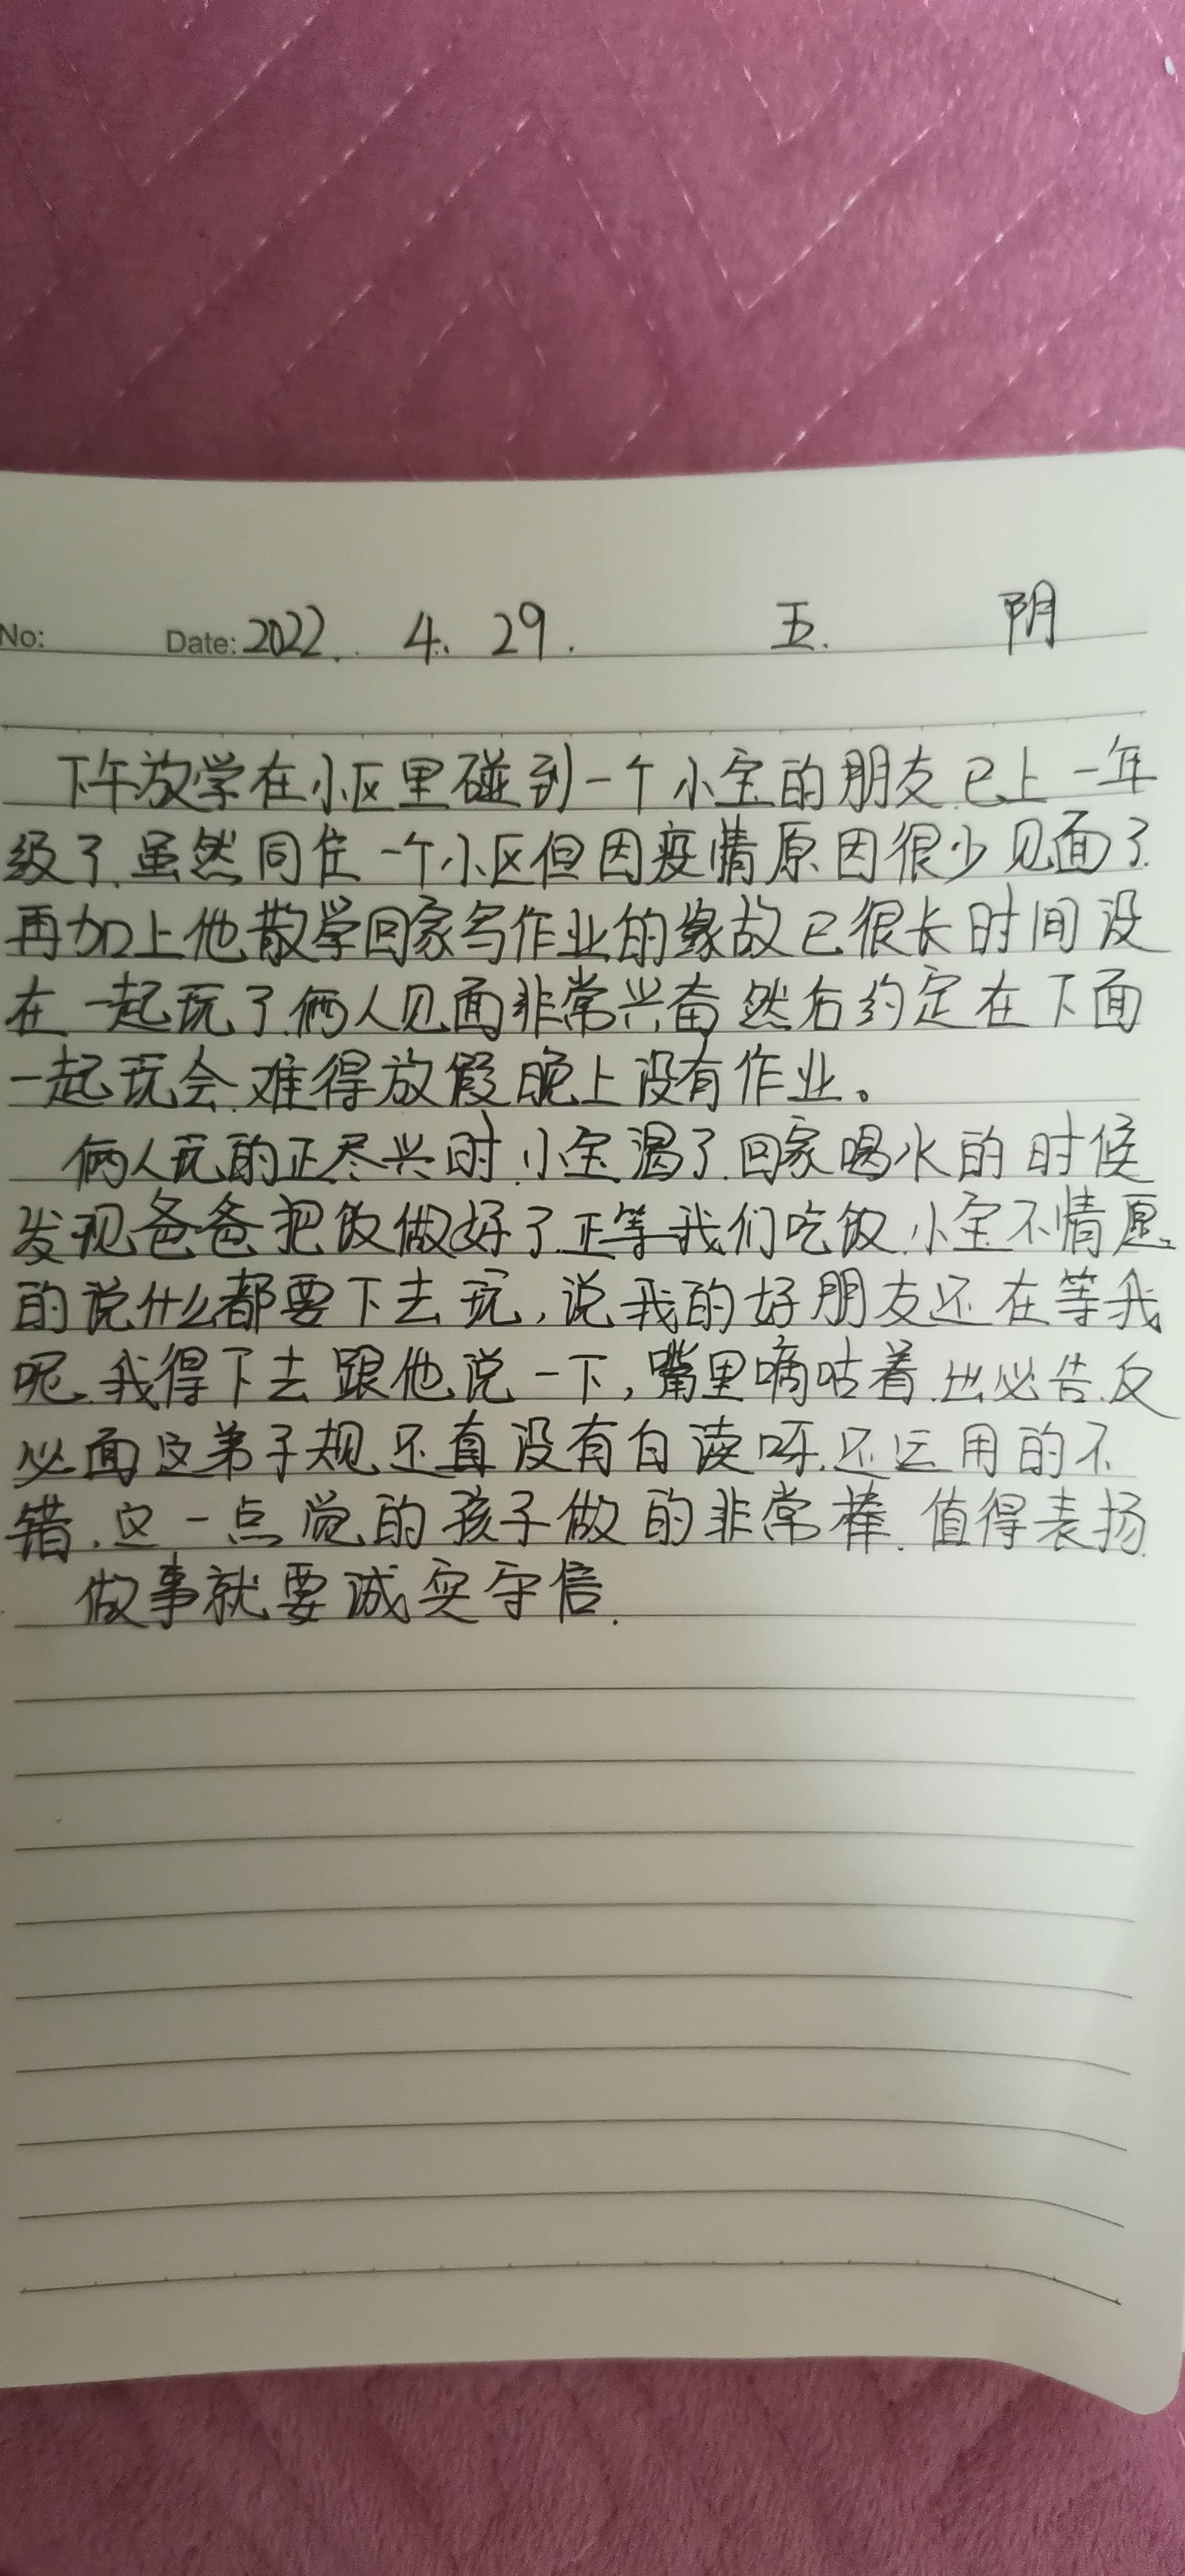 No: Date: 2022. 4. 29. 五. 阴
下午放学在小区里碰到一个小宝的朋友.已上一年
级了.虽然同住一个小区但因疫情原因很少见面了.
再加上他散学回家写作业的缘故已很长时间没
在一起玩了.俩人见面非常兴奋.然后约定在下面
一起玩会.难得放假晚上没有作业。
俩人玩的正尽兴时.小宝渴了.回家喝水的时候
发现爸爸把饭做好了.正等我们吃饭.小宝不情愿
的说什么都要下去玩,说我的好朋友还在等我
呢.我得下去跟他说一下,嘴里嘀咕着.出必告.反
必面这弟子规还真没有白读呀.还运用的不
错.这一点觉的孩子做的非常棒.值得表扬.
做事就要诚实守信.